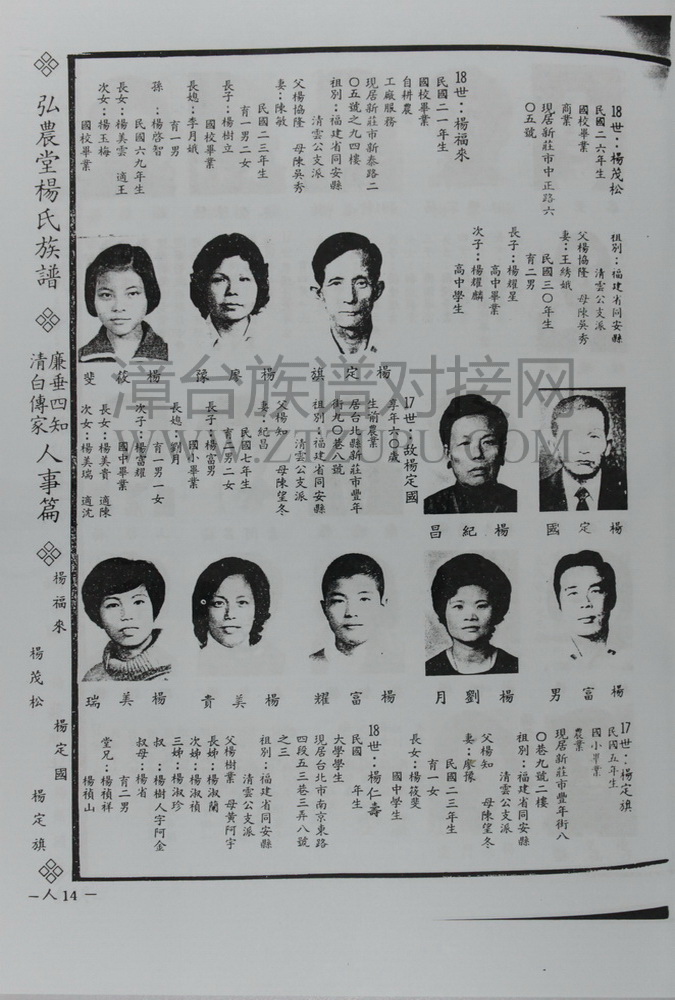 弘農堂楊氏族譜
廉垂四知
清白傳家
人事篇
楊福來
楊茂松
楊定國
楊定旗
18世：楊茂松
民國二六年生
國校畢業
商業
現居新莊市中正路六
〇五號
祖別：福建省同安縣
清雲公支派
父楊協隆 母陳吳秀
妻：王綉娥
民國三〇年生
育二男
長子：楊耀星
高中畢業
次子：楊耀麟
高中學生
18世：楊福來
民國二一年生
國校畢業
自耕農
工廠服務
現居新莊市新泰路二
〇五號之九四樓
祖別：福建省同安縣
清雲公支派
父楊協隆 母陳吳秀
妻：陳敏
民國二三年生
育一男二女
長子：楊樹立
國校畢業
長媳：李月娥
育一男
孫：楊啓智
民國六九年生
長女：楊美雲 適王
次女：楊玉梅
國校畢業
楊定旗
楊廖豫
楊筱斐
17世：故楊定國
享年六〇歲
生前農業
居台北縣新莊市豐年
街九〇巷八號
祖別：福建省同安縣
清雲公支派
父楊知 母陳望冬
妻：紀昌
民國七年生
育二男二女
長子：楊富男
國小畢業
長媳：劉月
育一男一女
次子：楊富耀
國中畢業
長女：楊美貴 適陳
次女：楊美瑞 適沈
楊定國
楊紀昌
楊富男
楊劉月
楊富耀
楊美貴
楊美瑞
17世：楊定旗
民國五年生
國小畢業
農業
現居新莊市豐年街八
〇巷九號二樓
祖別：福建省同安縣
清雲公支派
父楊知 母陳望冬
妻：廖豫
民國二三年生
育一女
長女：楊筱斐
國中學生
18世：楊仁壽
民國 年生
大學學生
現居台北市南京東路
四段五三巷三弄八號
之三
祖別：福建省同安縣
清雲公支派
父楊樹業 母黃阿宇
長姊：楊淑蘭
次姊：楊淑禎
三姊：楊淑珍
叔：楊樹人字阿金
叔母：楊省
育二男
堂兄：楊楨祥
楊楨山
—人14—
漳台族谱对接网
WWW.ZTZUPU.COM